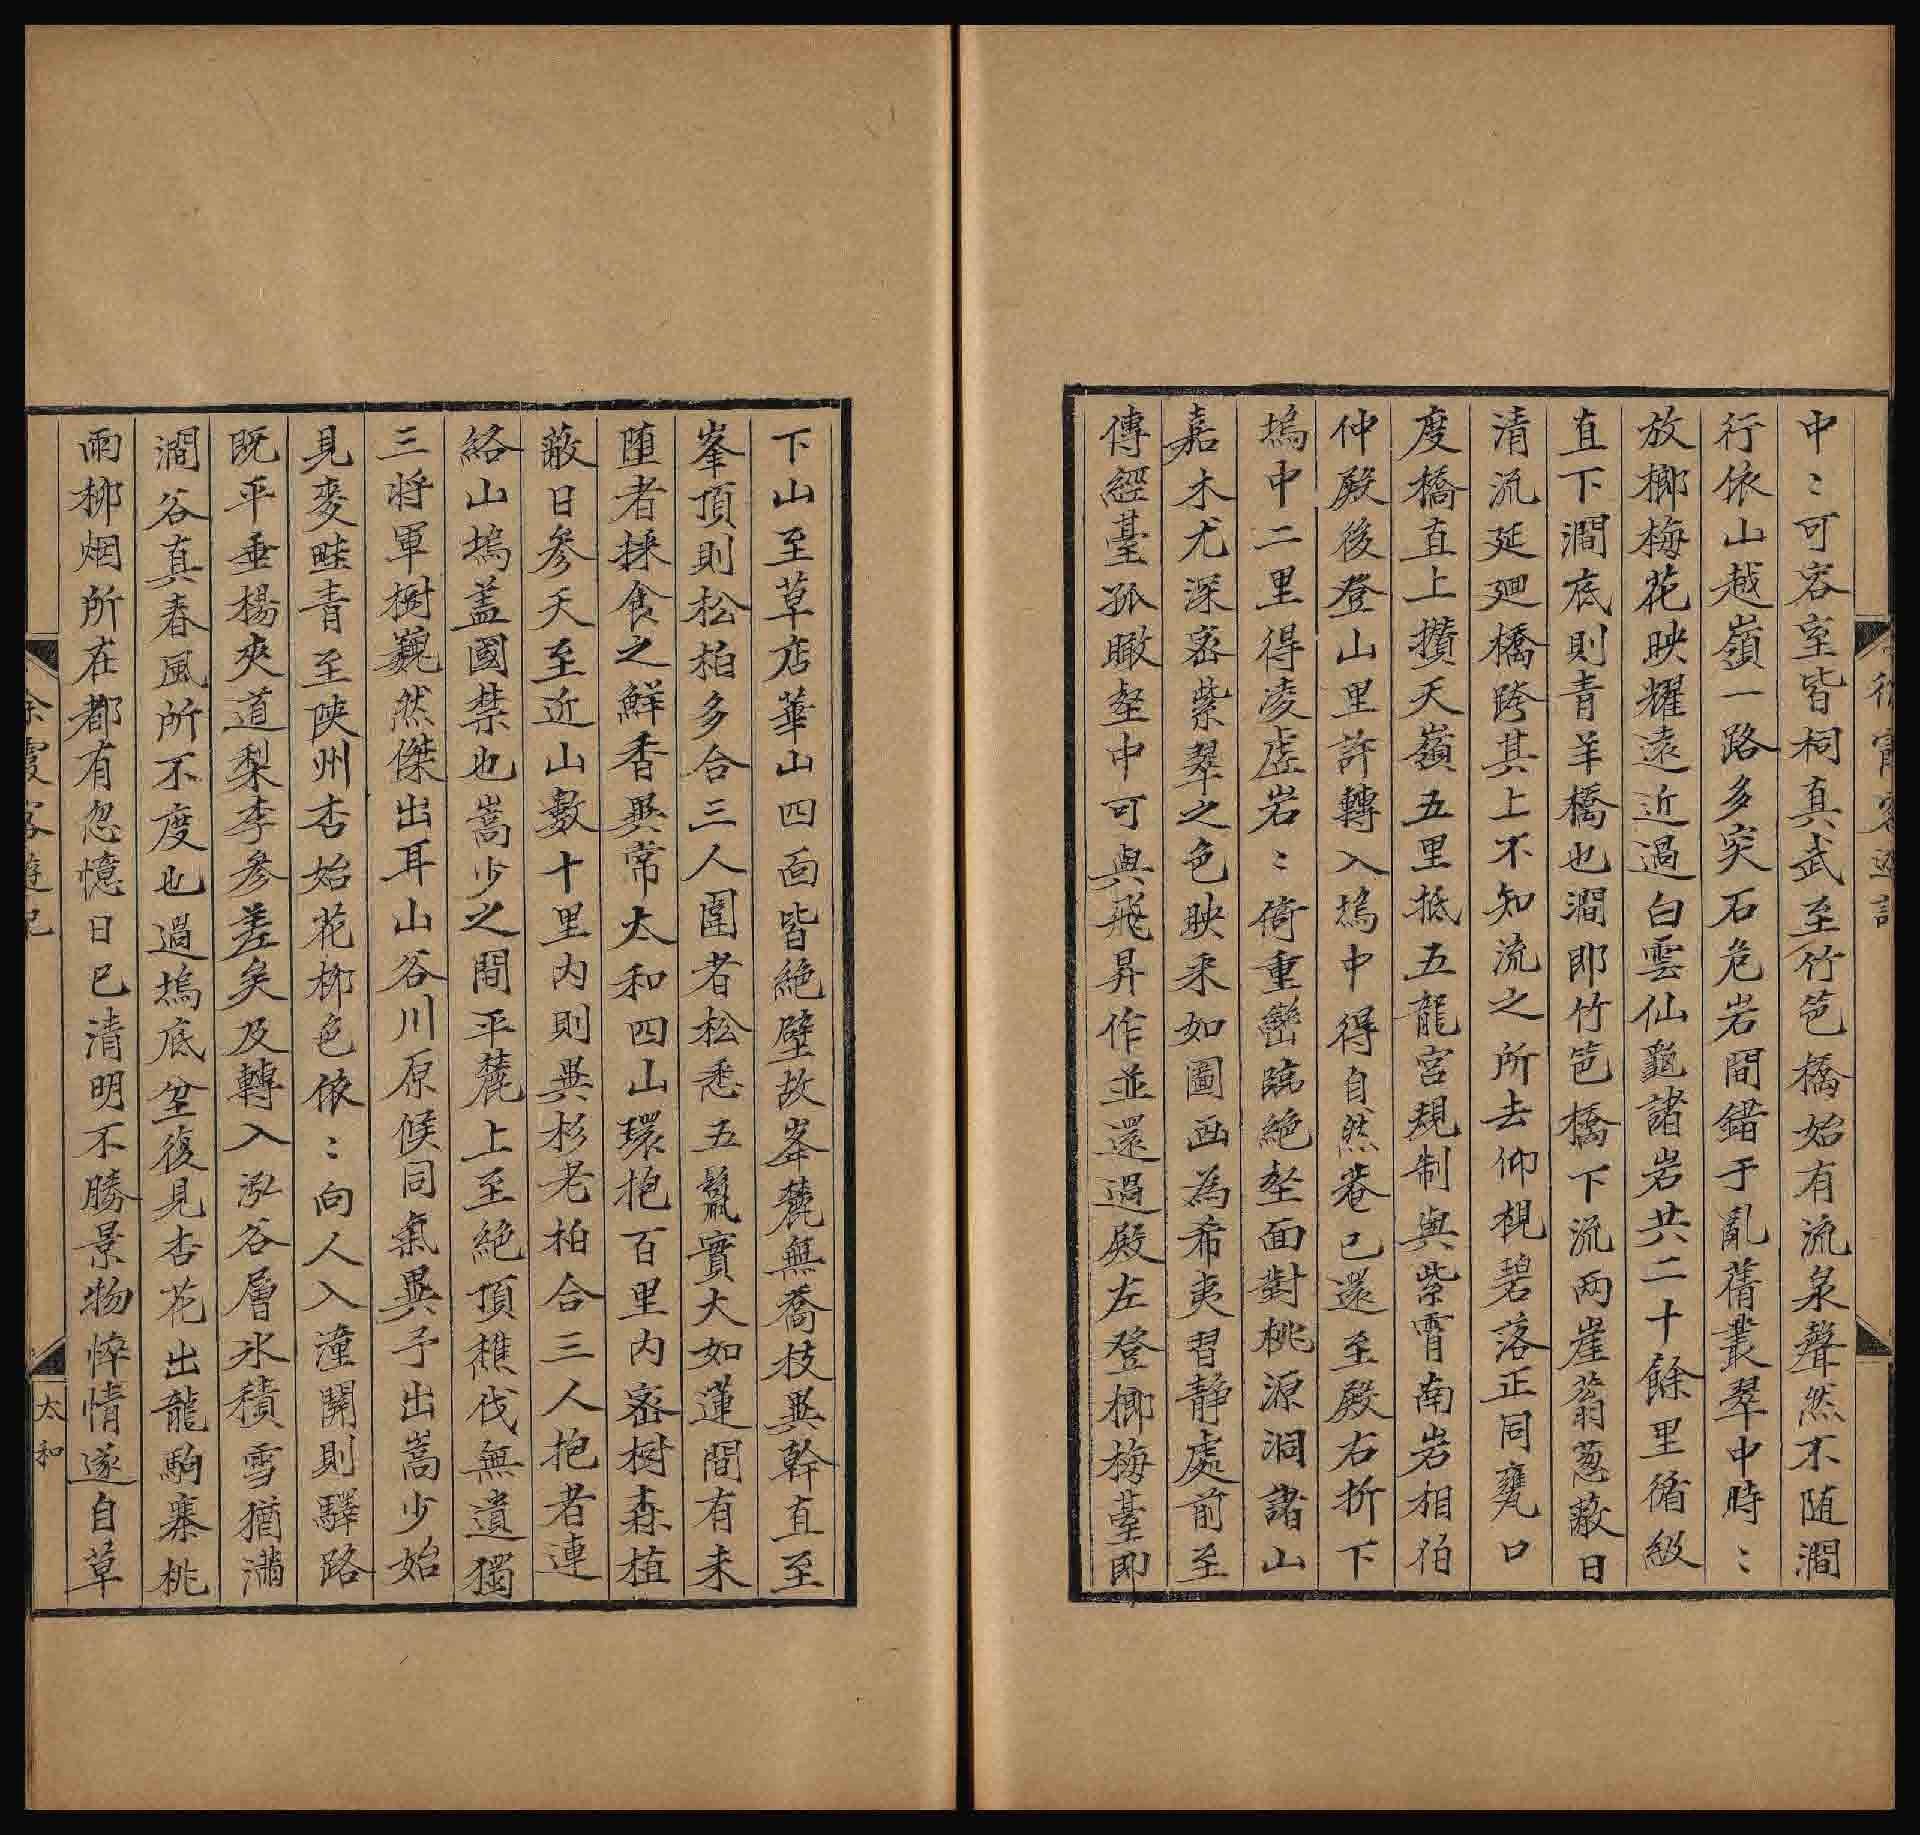 徐霞客遊記
中〻可容室皆祠真武至竹笆橋始有流泉聲然不随澗
行依山越嶺一路多突石危岩間錯于亂蒨叢翠中時〻
放榔梅花映耀遠近過白雲仙龜諸岩共二十餘里循級
直下澗底則青羊橋也澗即竹笆橋下流两崖蓊葱蔽日
清流延廻橋跨其上不知流之所去仰視碧落正同甕口
度橋直上攢天嶺五里抵五龍宫規制與紫霄南岩相伯
仲殿後登山里許轉入塢中得自然菴已還至殿右折下
塢中二里得凌虚岩〻倚重巒臨絶壑面對桃源洞諸山
嘉木尤深密紫翠之色映采如圖画為希夷習静處前至
傳經臺孤瞰壑中可與飛昇作並還過殿左登榔梅臺即
下山至草店華山四面皆絶壁故峯麓無喬枝異幹直至
峯頂則松柏多合三人圍者松悉五鬛實大如蓮間有未
堕者採食之鮮香異常太和四山環抱百里内密樹森植
蔽日參天至近山數十里内則異杉老柏合三人抱者連
絡山塢盖國禁也嵩少之間平麓上至絶頂樵伐無遺獨
三将軍樹巍然傑出耳山谷川原候同氣異予出嵩少始
見麥畦青至陝州杏始花柳色依〻向人入潼關則驛路
既平垂楊夾道梨李參差矣及轉入泓谷層氷積雪猶滿
澗谷真春風所不度也過塢底岔復見杏花出龍駒寨桃
雨柳烟所在都有忽憶日已清明不勝景物悴情遂自草
徐霞客遊記
太和